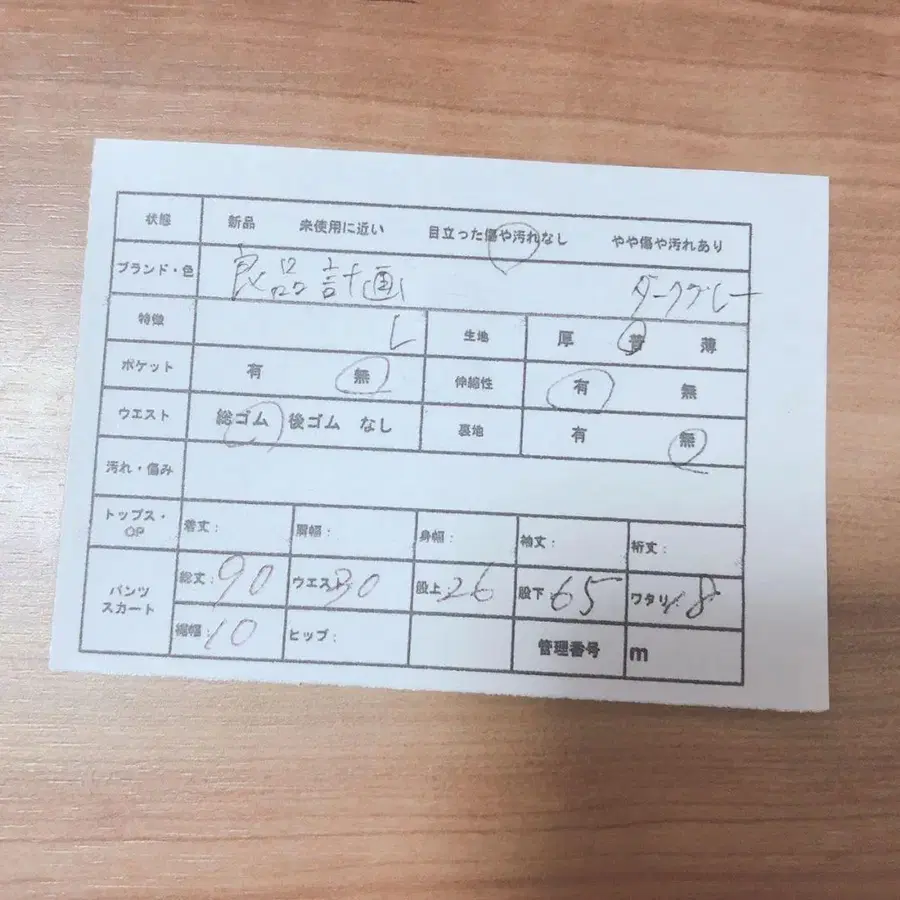 状態 新品 未使用に近い 目立った傷や汚れなし やや傷や汚れあり
ブランド・色 良品計画 ダークグレー
特徴 L 生地 厚 普 薄
ポケット 有 無 伸縮性 有 無
ウエスト 総ゴム 後ゴム なし 裏地 有 無
汚れ・傷み
トップス・OP 着丈: 肩幅: 身幅: 袖丈: 裄丈:
パンツ スカート 総丈:90 ウエスト:30 股上:26 股下:65 ワタリ:18
裾幅:10 ヒップ: 管理番号 m